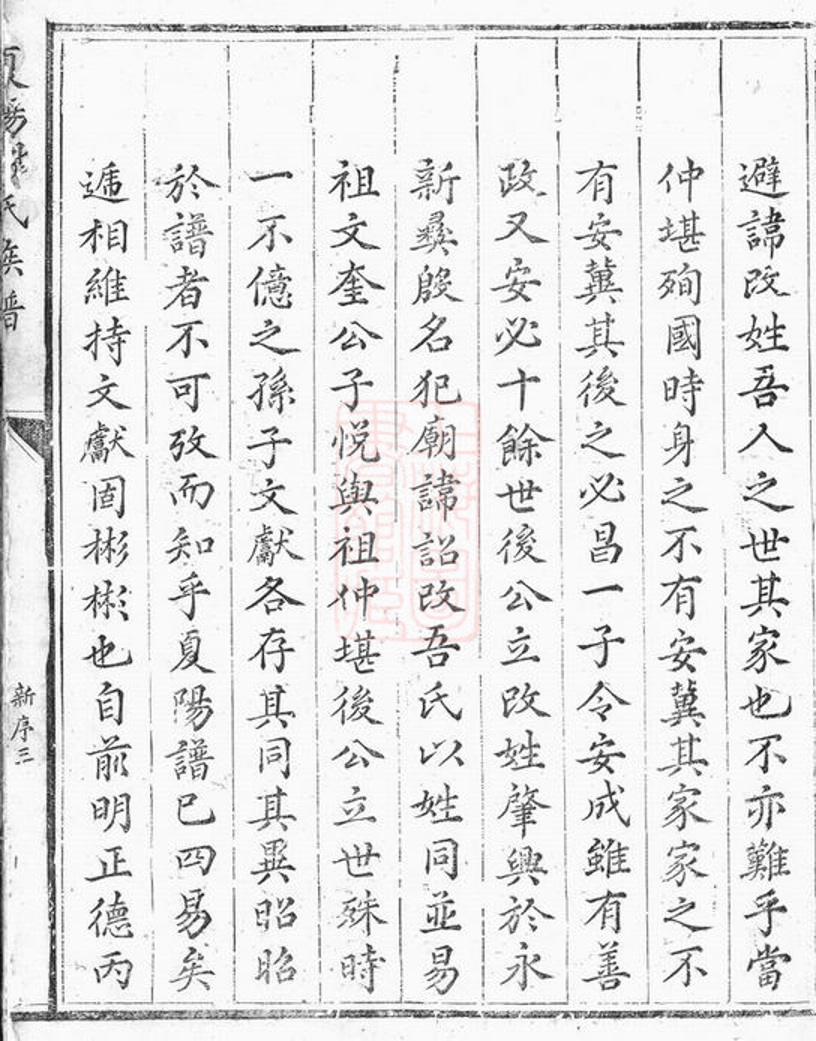 避諱改姓吾人之世其家也不亦難乎當
仲堪殉國時身之不有安冀其家家之不
有安冀其後之必昌一子令安成雖有善
政又安必十餘世後公立改姓肇興於永
新彛殷名犯廟諱詔改吾氏以姓同並易
祖文奎公子悅與祖仲堪後公立世殊時
一不億之孫子文獻各存其同其異昭昭
於譜者不可攷而知乎夏陽譜已四易矣
遞相維持文獻固彬彬也自前明正德丙
氏族譜
新序三